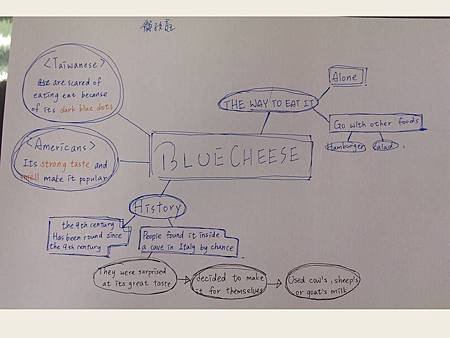 <Taiwanese>
are scared of
eating eat because
of its dark blue dots
<Americans>
Its strong taste and
smell make it popular
BLUE CHEESE
THE WAY TO EAT IT
Alone
Go with other foods
Hamburger
Salad
History
the 9th century
Has been round since
the 9th century
People found it inside
a cave in Italy by chance
They were surprised
at its great taste
decided to make
it for themselves
Used cow's, sheep's
or goat's milk